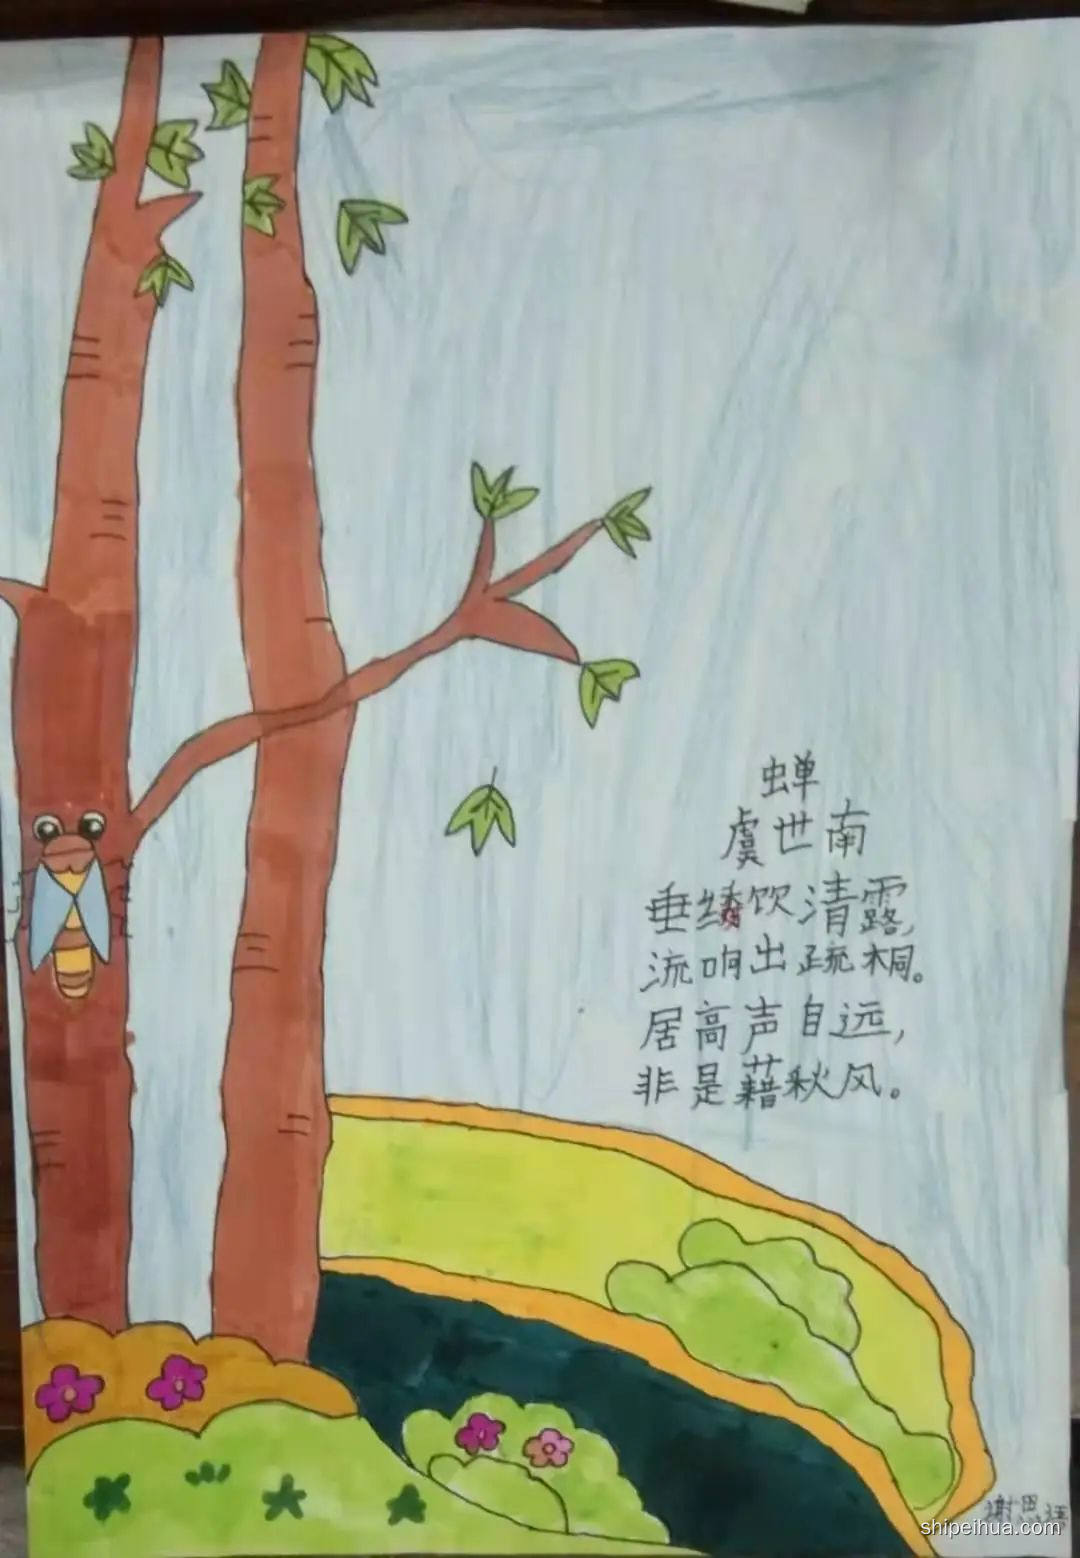 蝉
虞世南
垂绣饮清露,
流响出疏桐。
居高声自远,
非是藉秋风。
谢思语
shipeihua.com